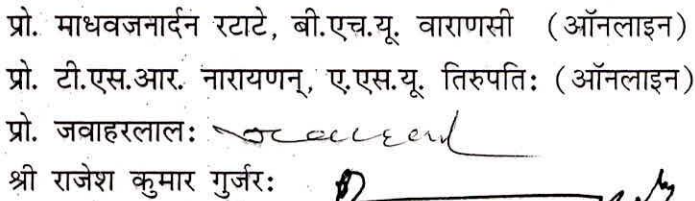 प्रो. माधवजनार्दन रटाटे, बी.एच.यू. वाराणसी (ऑनलाइन)
प्रो. टी.एस.आर. नारायणन्, ए.एस.यू. तिरुपतिः (ऑनलाइन)
प्रो. जवाहरलालः
श्री राजेश कुमार गुर्जरः